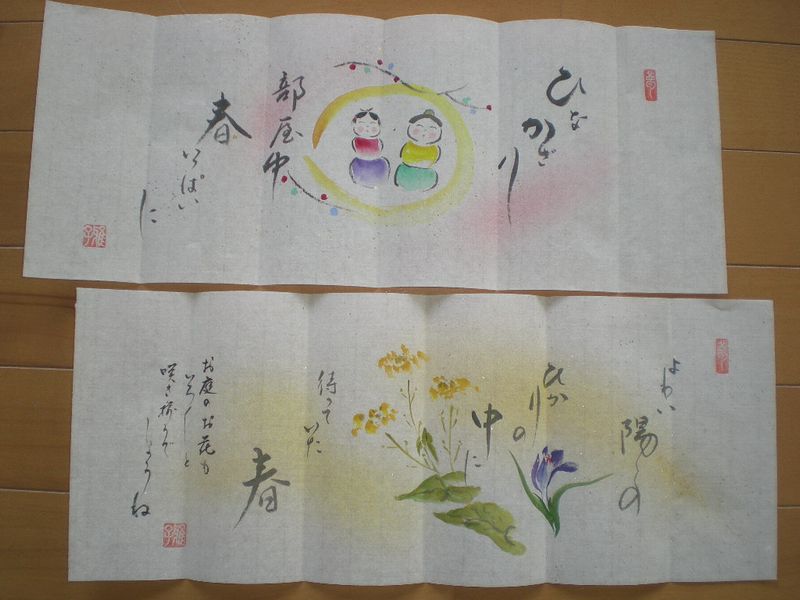 ひなかざり
部屋中
春
いっぱい
に
よわい
陽しの
ひかりの
中に
待って
いた
春
お庭のお花も
咲き揃うで
しょうね